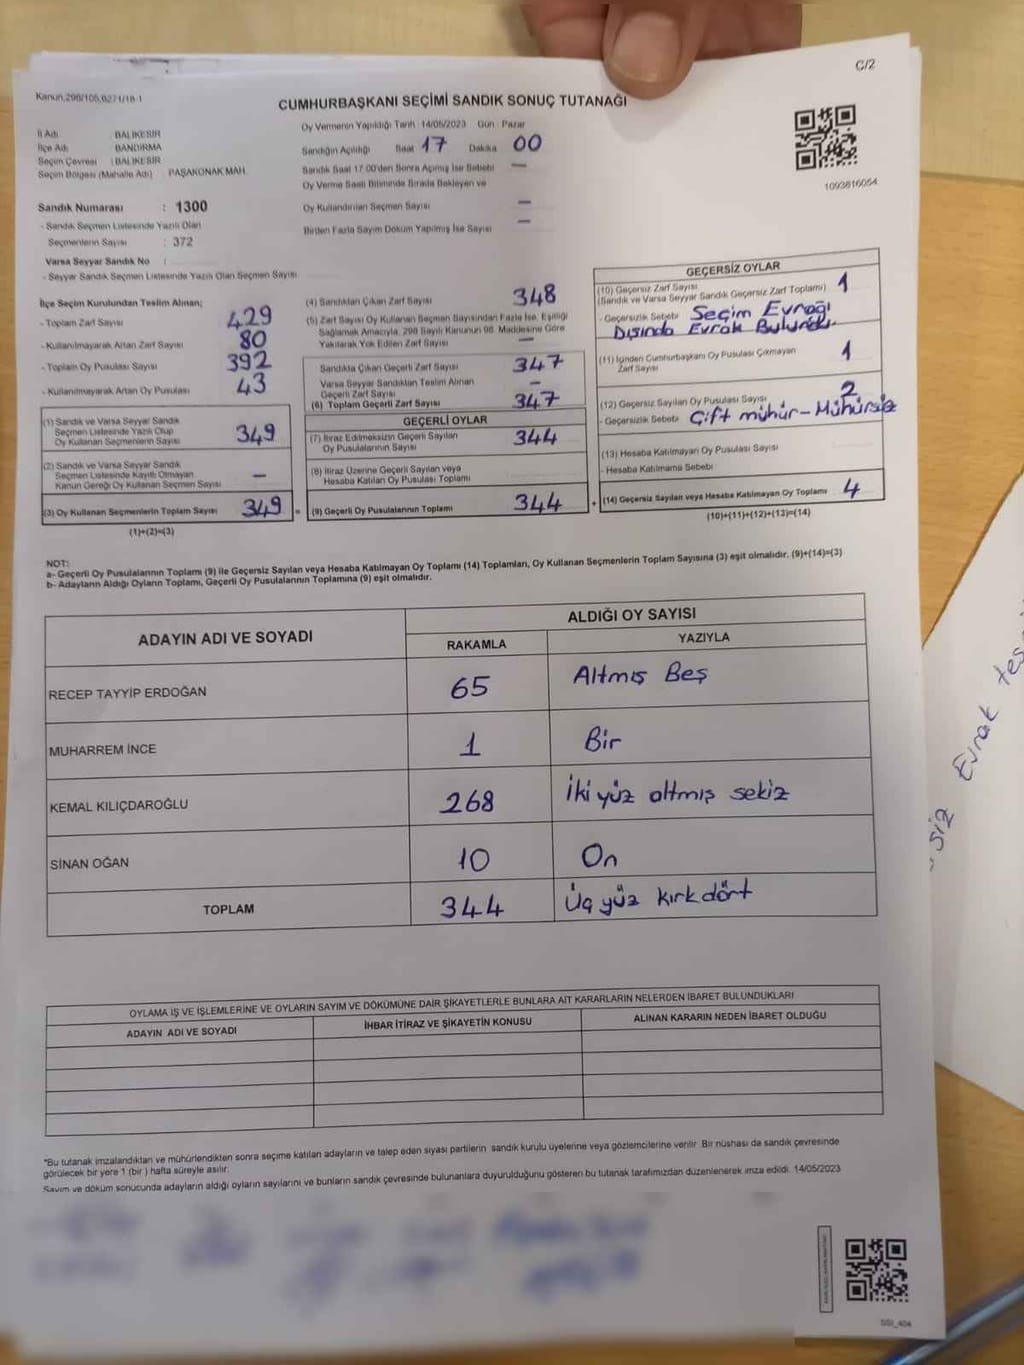 C/2
Kanun.298/105,6271/18-1
CUMHURBAŞKANI SEÇİMİ SANDIK SONUÇ TUTANAĞI
İl Adı : BALIKESİR
İlçe Adı : BANDIRMA
Seçim Çevresi : BALIKESİR
Seçim Bölgesi (Mahalle Adı) : PAŞAKONAK MAH.
Oy Vermenin Yapıldığı Tarih :14/05/2023 Gün : Pazar
Sandığın Açıldığı Saat 17 Dakika 00
Sandık Saat 17.00'den Sonra Açılmış İse Sebebi —
Oy Verme Saati Bitiminde Sırada Bekleyen ve
Oy Kullandırılan Seçmen Sayısı —
Birden Fazla Sayım Döküm Yapılmış İse Sayısı —
1093816054
Sandık Numarası : 1300
- Sandık Seçmen Listesinde Yazılı Olan
Seçmenlerin Sayısı : 372
Varsa Seyyar Sandık No :
- Seyyar Sandık Seçmen Listesinde Yazılı Olan Seçmen Sayısı
İlçe Seçim Kurulundan Teslim Alınan;
- Toplam Zarf Sayısı 429
- Kullanılmayarak Artan Zarf Sayısı 80
- Toplam Oy Pusulası Sayısı 392
- Kullanılmayarak Artan Oy Pusulası 43
(1) Sandık ve Varsa Seyyar Sandık
Seçmen Listesinde Yazılı Olup
Oy Kullanan Seçmenlerin Sayısı 349
(2) Sandık ve Varsa Seyyar Sandık
Seçmen Listesinde Kayıtlı Olmayan
Kanun Gereği Oy Kullanan Seçmen Sayısı —
(3) Oy Kullanan Seçmenlerin Toplam Sayısı 349 =
(1)+(2)=(3)
(4) Sandıktan Çıkan Zarf Sayısı 348
(5) Zarf Sayısı Oy Kullanan Seçmen Sayısından Fazla İse, Eşitliği
Sağlamak Amacıyla, 298 Sayılı Kanunun 98. Maddesine Göre
Yakılarak Yok Edilen Zarf Sayısı —
Sandıkta Çıkan Geçerli Zarf Sayısı 347
Varsa Seyyar Sandıktan Teslim Alınan
Geçerli Zarf Sayısı —
(6) Toplam Geçerli Zarf Sayısı 347
GEÇERLİ OYLAR
(7) İtiraz Edilmeksizin Geçerli Sayılan
Oy Pusulalarının Sayısı 344
(8) İtiraz Üzerine Geçerli Sayılan veya
Hesaba Katılan Oy Pusulası Toplamı
(9) Geçerli Oy Pusulalarının Toplamı 344 +
GEÇERSİZ OYLAR
(10) Geçersiz Zarf Sayısı 1
(Sandık ve Varsa Seyyar Sandık Geçersiz Zarf Toplamı)
- Geçersizlik Sebebi Seçim Evrağı
Dışında Evrak Bulundu.
(11) İçinden Cumhurbaşkanı Oy Pusulası Çıkmayan
Zarf Sayısı 1
(12) Geçersiz Sayılan Oy Pusulası Sayısı 2
- Geçersizlik Sebebi Çift mühür-Mühürsüz
(13) Hesaba Katılmayan Oy Pusulası Sayısı
- Hesaba Katılmama Sebebi
(14) Geçersiz Sayılan veya Hesaba Katılmayan Oy Toplamı 4
(10)+(11)+(12)+(13)=(14)
NOT:
a- Geçerli Oy Pusulalarının Toplamı (9) ile Geçersiz Sayılan veya Hesaba Katılmayan Oy Toplamı (14) Toplamları, Oy Kullanan Seçmenlerin Toplam Sayısına (3) eşit olmalıdır. (9)+(14)=(3)
b- Adayların Aldığı Oyların Toplamı, Geçerli Oy Pusulalarının Toplamına (9) eşit olmalıdır.
ADAYIN ADI VE SOYADI
ALDIĞI OY SAYISI
RAKAMLA YAZIYLA
RECEP TAYYİP ERDOĞAN 65 Altmış Beş
MUHARREM İNCE 1 Bir
KEMAL KILIÇDAROĞLU 268 İki yüz altmış sekiz
SİNAN OĞAN 10 On
TOPLAM 344 Üç yüz kırkdört
OYLAMA İŞ VE İŞLEMLERİNE VE OYLARIN SAYIM VE DÖKÜMÜNE DAİR ŞİKAYETLERLE BUNLARA AİT KARARLARIN NELERDEN İBARET BULUNDUKLARI
ADAYIN ADI VE SOYADI İHBAR İTİRAZ VE ŞİKAYETİN KONUSU ALINAN KARARIN NEDEN İBARET OLDUĞU
*Bu tutanak imzalandıktan ve mühürlendikten sonra seçime katılan adayların ve talep eden siyasi partilerin sandık kurulu üyelerine veya gözlemcilerine verilir. Bir nüshası da sandık çevresinde
görülecek bir yere 1 (bir ) hafta süreyle asılır.
Sayım ve döküm sonucunda adayların aldığı oyların sayılarını ve bunların sandık çevresinde bulunanlara duyurulduğunu gösteren bu tutanak tarafımızdan düzenlenerek imza edildi. 14/05/2023
SSI_404
Evrak